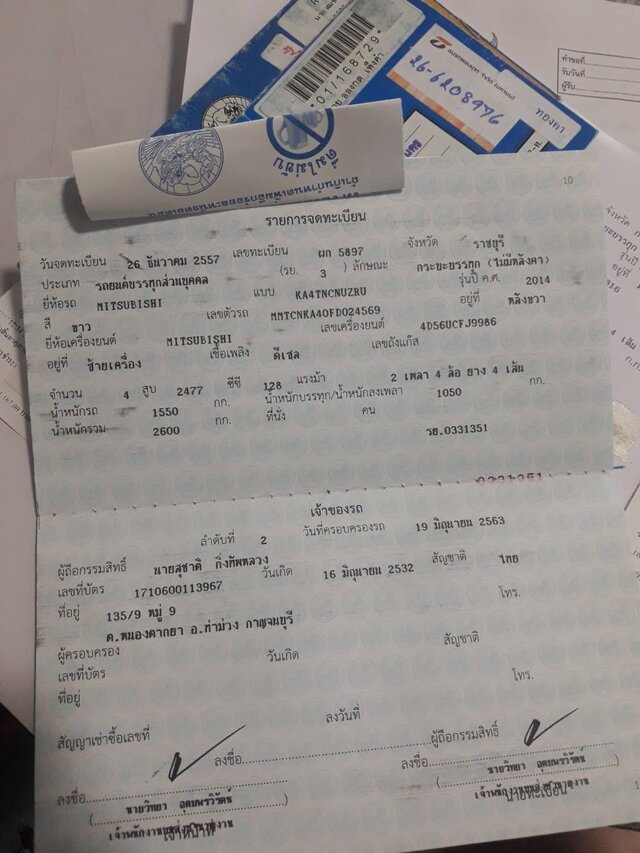 101/168729
26-6208976
ทองผา
คำขอที่
วันที่
ผู้รับ
ดื่มไม่ขับ
10
รายการจดทะเบียน
วันจดทะเบียน 26 ธันวาคม 2557 เลขทะเบียน ผก 5897 จังหวัด ราชบุรี
ประเภท รถยนต์บรรทุกส่วนบุคคล (รย. 3 ) ลักษณะ กระบะบรรทุก (ไม่มีหลังคา)
ยี่ห้อรถ MITSUBISHI แบบ KA4TNCNUZRU รุ่นปี ค.ศ. 2014
สี ขาว เลขตัวรถ MMTCNKA40FD024569 อยู่ที่ หลังขวา
ยี่ห้อเครื่องยนต์ MITSUBISHI เลขเครื่องยนต์ 4D56UCFJ9986
อยู่ที่ ซ้ายเครื่อง เชื้อเพลิง ดีเซล เลขถังแก๊ส
จำนวน 4 สูบ 2477 ซีซี 128 แรงม้า 2 เพลา 4 ล้อ ยาง 4 เส้น
น้ำหนักรถ 1550 กก. น้ำหนักบรรทุก/น้ำหนักลงเพลา 1050 กก.
น้ำหนักรวม 2600 กก. ที่นั่ง คน
รย.0331351
0331351
เจ้าของรถ
ลำดับที่ 2 วันที่ครอบครองรถ 19 มิถุนายน 2563
ผู้ถือกรรมสิทธิ์ นายสุชาติ กิ่งทัพหลวง
เลขที่บัตร 1710600113967 วันเกิด 16 มิถุนายน 2532 สัญชาติ ไทย
ที่อยู่ 135/9 หมู่ 9 โทร.
ต.หนองตากยา อ.ท่าม่วง กาญจนบุรี
ผู้ครอบครอง
เลขที่บัตร วันเกิด สัญชาติ
ที่อยู่ โทร.
สัญญาเช่าซื้อเลขที่ ลงวันที่
ลงชื่อ ผู้ถือกรรมสิทธิ์
ลงชื่อ ลงชื่อ
( นายวิทยา อุดมพรวิรัตน์ ) ( นายวิทยา อุดมพรวิรัตน์ )
เจ้าหน้าที่ นายทะเบียน